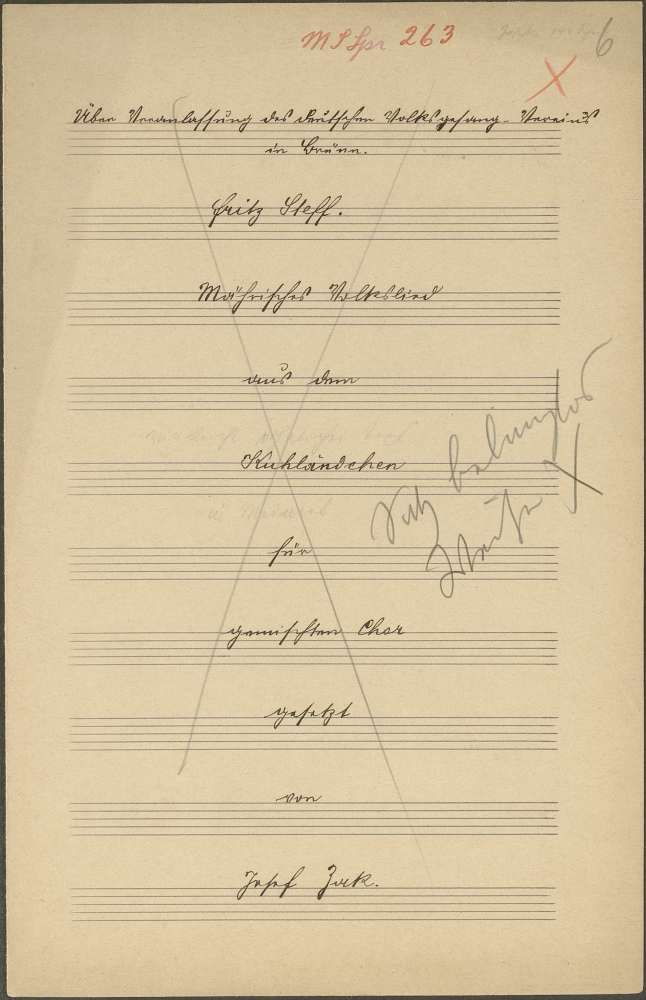 MS Spr 263
6
X
Über Veranlassung des deutschen Volksgesang-Vereins
in Brünn.
Fritz Steff.
Mährisches Volkslied
aus dem
Kuhländchen
für
gemischten Chor
gesetzt
von
Josef Zak.
Satz belanglos
X